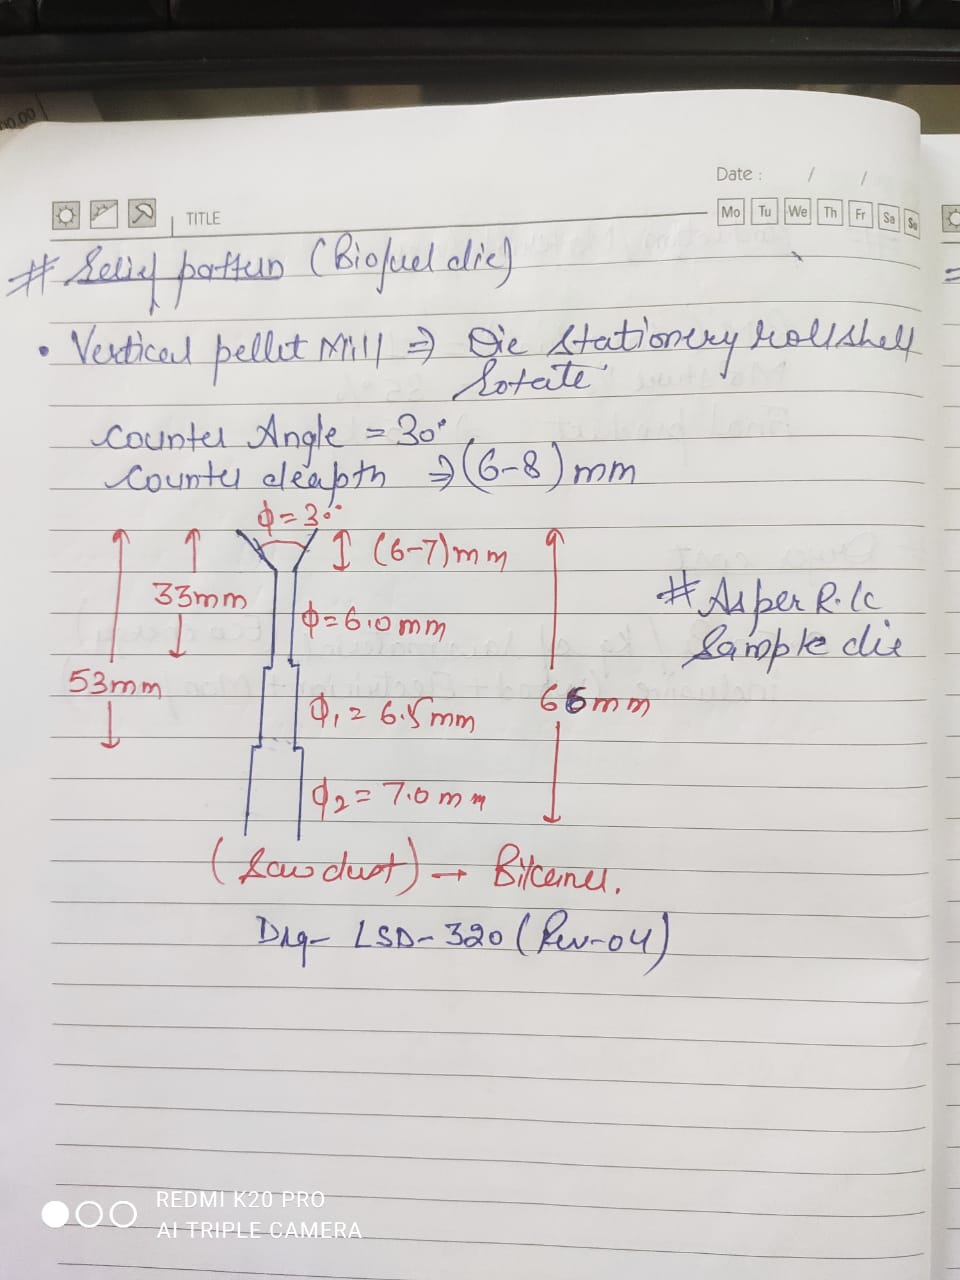 Date : / /
TITLE
Mo Tu We Th Fr Sa Su
# Relief pattern (Biofuel die)
• Vertical pellet Mill ⇒ Die Stationery roll shell
Rotate
Counter Angle = 30°
Counter deapth ⇒ (6-8) mm
ϕ = 30°
(6-7) mm
33mm
ϕ = 6.0 mm
# As per R.K
Sample die
53mm
66mm
ϕ1 = 6.5 mm
ϕ2 = 7.0 mm
(Saw dust) →
Drg- LSD-320 (Rev-04)
REDMI K20 PRO
AI TRIPLE CAMERA